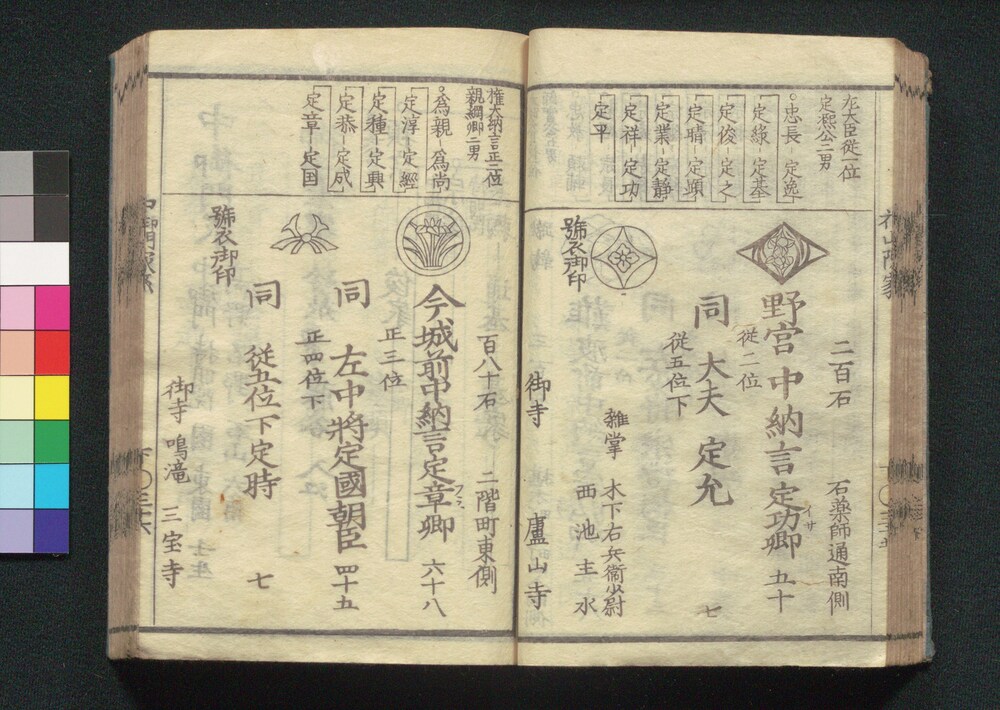 左大臣従一位
定凞公二男
忠長 定逸
定縁 定基
定俊 定之
定晴 定顕
定業 定静
定祥 定功
定平
二百石 石薬師通南側
野宮中納言定功卿 五十
イサ
従二位
同 大夫 定允 七
従五位下
雑掌 木下右兵衛少尉
西池主水
號衣御印
御寺 盧山寺
権大納言正二位
親綱卿二男
為親 為尚
定淳 定經
定種 定興
定恭 定成
定章 定国
百八十石 二階町東側
今城前中納言定章卿 六十八
正三位
同 左中将定國朝臣 四十五
正四位下
同 従五位下定時 七
號衣御印
御寺 鳴滝 三宝寺